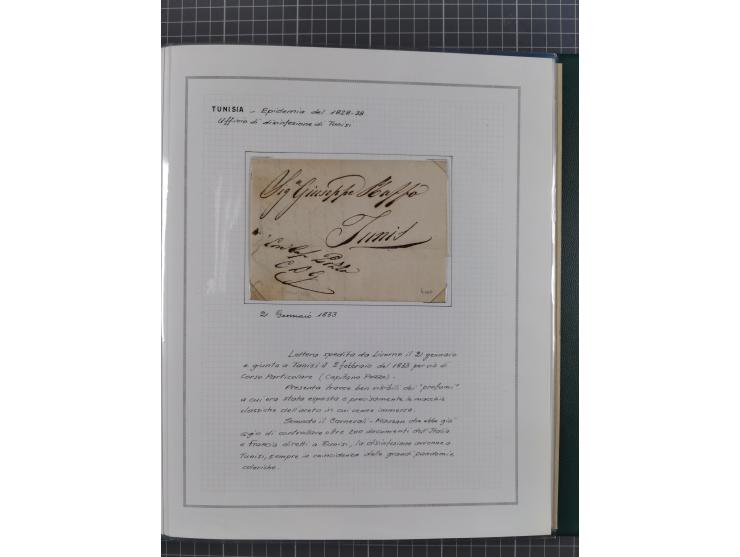 TUNISIA - Epidemia del 1828-38
Ufficio di disinfezione di Tunisi
Sig.r Giuseppe Raffo
Tunis
Cap. Pozzo
21 Gennaio 1833
Lettera spedita da Livorno il 21 gennaio
e giunta a Tunisi il 5 febbraio del 1833 per via di
Corso Particolare (Capitano Pozzo).
Presenta tracce ben visibili dei "profumi"
a cui era stata esposta o precisamente le macchie
classiche dell'aceto in cui venne immersa.
Secondo il Carnevali - Marsan che ebbe già
agio di controllare oltre 200 documenti dell'Italia
e Francia diretti a Tunisi, la disinfezione avvenne a
Tunisi, sempre in coincidenza delle grandi pandemie
coleriche.